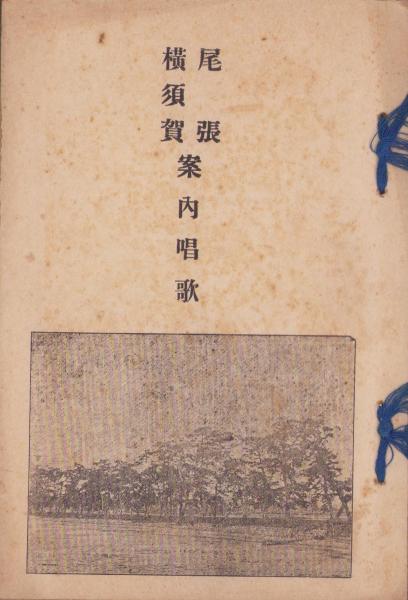 尾張
横須賀
案内唱歌